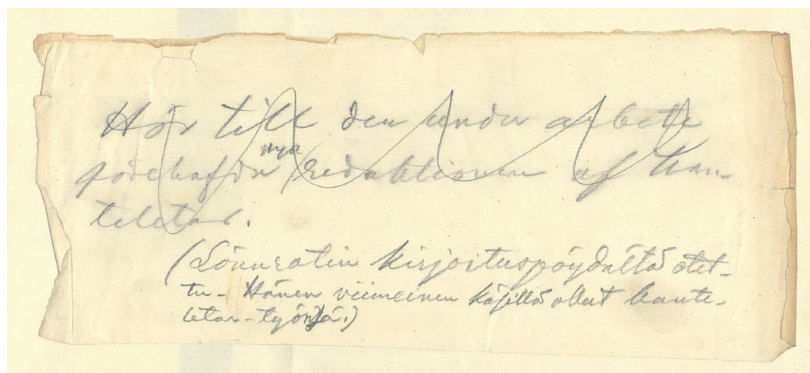 Hör till den under arbete
nya
redaktionen af Kan-
teletar.
(Lönnrotin kirjoituspöydältä otet-
tu – Hänen viimeinen käsillä ollut kante-
letar-työnsä.)